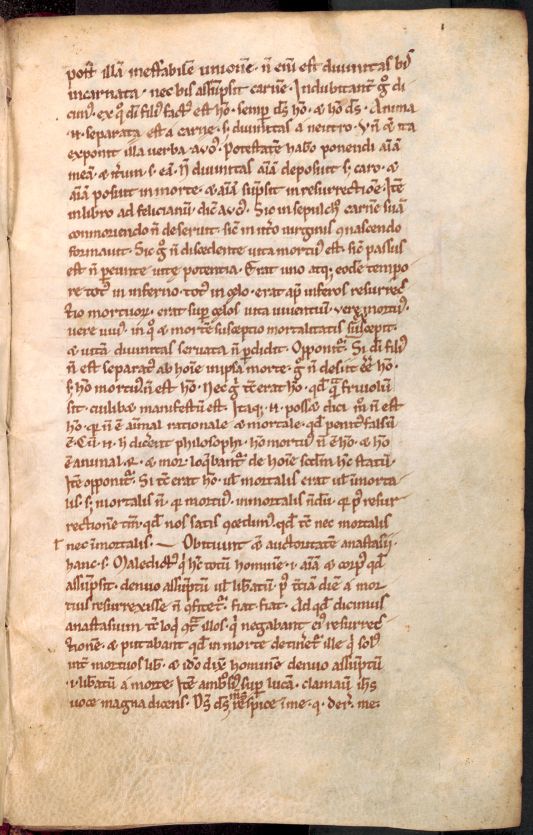 post illā ineffabilē unionē · n̄ eni est diuinitas bis
incarnata · nec bis assūpsit carnē · Indubitant̄ g̊ di
cim᷒ · ex q̊ di fili᷒ fact᷒ est hō · semp ds̄ hō · & hō ds̄ · Anima
·n· separata est a carne · s; diuinitas a neutro · Vn̄ & ita
exponit illa uerba aug᷒ · Potestatē habeo ponendi aīā
meā · & it̄um · s · eā · N̄ diuinitas aīā deposuit s; caro · &
aīā posuit in morte · & aīā sūpsit in resurrectiōe · Itē
in libro ad felicianū · dic̄ aug᷒ · Sic in sepulch᷒ carnē suā
commoriendo n̄ deseruit · sic̄ in ut̄o uirginis ɔnascendo
formauit · Sic g̊ n̄ discedente uita mortu᷒ est · sic̄ passus
est n̄ pereunte uite potentia · Erat uno atq; eodē tempo
re tot᷒ in inferno · tot᷒ in celo · erat ap̄ inferos resurrec
tio mortuoꝝ · erat sup celos uita uiuentiū · uere mortu᷒ ·
uere uiu᷒ · in q̊ & mortē susceptio mortalitatis suscepit ·
& uitā diuinitas seruata n̄ pdidit · Opponit̄ · Si di fili᷒
n̄ est separat᷒ ab hoīe in ipsa morte · g̊ n̄ desiit ēē hō ·
s; hō mortu᷒ n̄ est hō · Nec g̊ tc̄ erat hō · qd̄ q̄ friuolū
sit · cuilibet manifestū est · Itaq; ·n· posset dici m̊ n̄ est
hō · q̄ n̄ ē aīmal rationale & mortale · qd̄ penit᷒ falsū
ē · Cū ·n· h̄ dicerent philosophi · hō mortu᷒ n̄ ē hō · & hō
ē animal · R · & mor · loq̄bant̄ de hoīe scdm hc̄ statū ·
Itē opponit̄ · Si tc̄ erat hō · uł mortalis erat uł īmorta
lis · s; mortalis n̄ · q̄ mortu᷒ · inmortalis n̄dū · q̄ p̄ resur
rectionē tm̄ · qd̄ nos satis ɔcedim᷒ · qd̄ tc̄ nec mortalis
nec īmortalis · — Obitiunt & auctoritatē anastasii ·
hanc · s · Maledict᷒ q̄ hc̄ totū hominē · i · aīā & corp᷒ qd̄
assūpsit · denuo assūptū uł libatū · p̄ t̄ciā diē a mor
tuis resurrexisse n̄ ɔfitet̄ · fiat fiat · Ad qd̄ dicimus
anastasium tc̄ loq̄ ɔt̄ illos · q̄ negabant ei᷒ resurrec
tionē · & putabant qd̄ in morte detineret̄ ille q̄ sol᷒
int̄ mortuos lib̄ · & ido dix̄ hominē denuo assūptū
·i· libatū a morte · Itē ambs᷒ sup lucā · clamauit ihs
uoce magna dicens · Ds̄ ds̄ m̄s respice ī me · q · der̄ · me ·